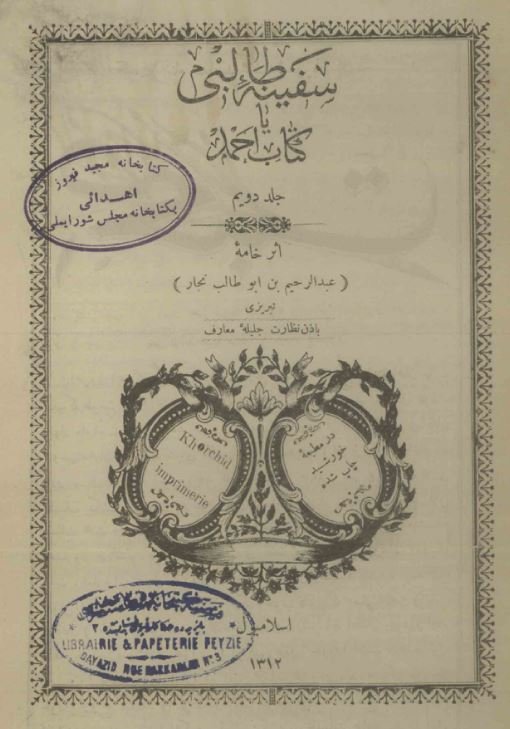 سفینهٔ طالبی
یا
کتاب احمد
جلد دویم
کتابخانه مجید فیروز
اهدائی
بکتابخانه مجلس شورایملی
اثر خامهٔ
( عبدالرحیم بن ابو طالب نجار )
تبریزی
باذن نظارت جلیلهٔ معارف
Khorchid
imprimerie
در مطبعهٔ
خورشید
چاپ شده
اسلامبول
۱۳۱۲
LIBRAIRIE & PAPETERIE PEYZIE
BAYAZID RUE HAKKAKLAR Nº 3